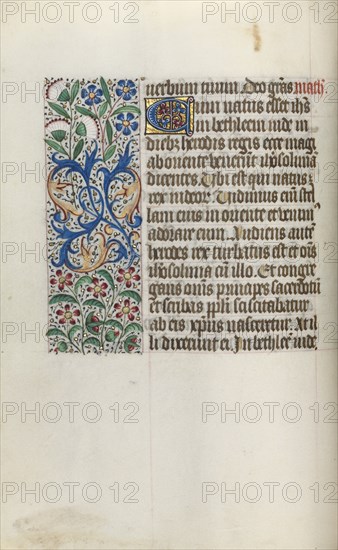 uerbum tuum. Deo grãs math.
Cum natus esset ihs
in bethleem iude in
diebz herodis regis ecce magi
ab oriente uenerũt iherosolimã
dicentes. Ubi est qui natus ẽ
rex iudeor. Uidimus eni stel
lam eius in oriente et uenim
adorare eum. Audiens aute
herodes rex turbatus est et oms
iherosolima cum illo. Et congre
gans omis principes sacerdotũ
et scribas ppli sciscitabatur
ab eis xpius nasceretur. At il
li dixerunt ei. In bethleẽ iude.
PHOTO 12